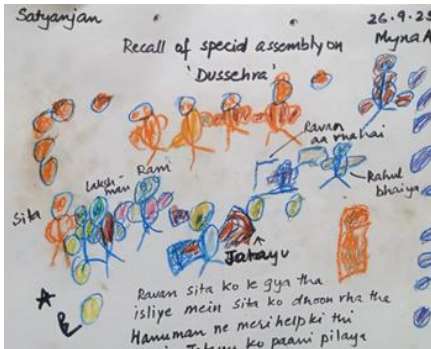 Satyanjan
26.9.25
Myna A
Recall of special assembly on
'Dussehra'
Ravan
aa raha hai
Rahul
bhaiya
Ram
Laksh-
man
Sita
Jatayu
Ravan sita ko le gya tha
isliye mein sita ko dhoon rha tha
Hanuman ne meri help ki thi
Jatayu ko paani pilaya